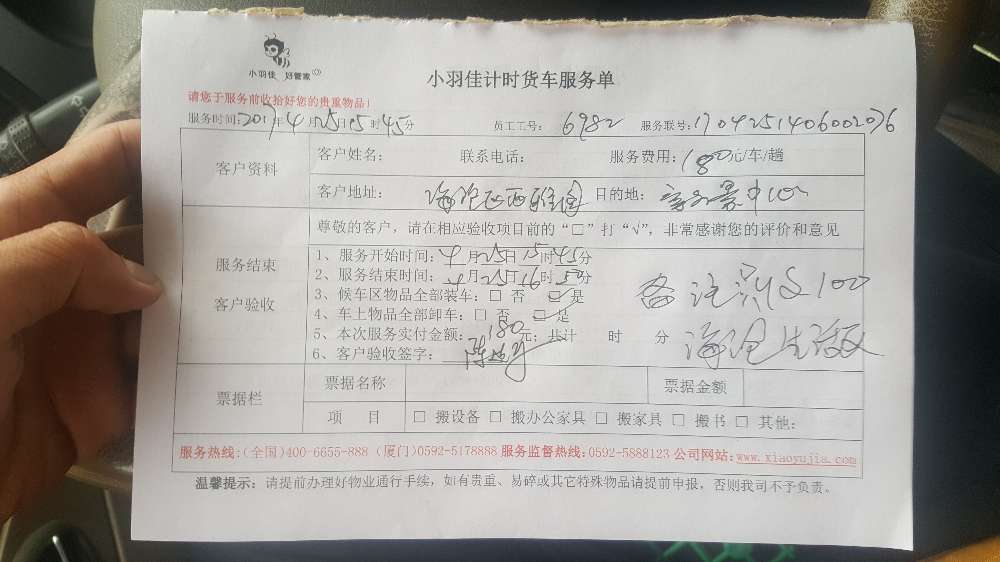 小羽佳 好管家
小羽佳计时货车服务单
请您于服务前收拾好您的贵重物品！
服务时间:2017年4月25日15时45分 员工工号: 6982 服务联号:1704251406002076
客户资料
客户姓名: 联系电话: 服务费用:180元/车/趟
客户地址: 目的地:
尊敬的客户，请在相应验收项目前的“□”打“√”，非常感谢您的评价和意见
服务结束
客户验收
1、服务开始时间:4月25日15时45分
2、服务结束时间:4月25日16时50分
3、候车区物品全部装车: □ 否 □ 是
4、车上物品全部卸车: □ 否 □ 是
5、本次服务实付金额: 180元; 共计 时 分
6、客户验收签字: 陈
备注 100
票据栏
票据名称 票据金额
项 目 □ 搬设备 □ 搬办公家具 □ 搬家具 □ 搬书 □ 其他:
服务热线:(全国)400-6655-888 (厦门)0592-5178888 服务监督热线:0592-5888123 公司网站:www.xiaoyujia.com
温馨提示: 请提前办理好物业通行手续，如有贵重、易碎或其它特殊物品请提前申报，否则我司不予负责。